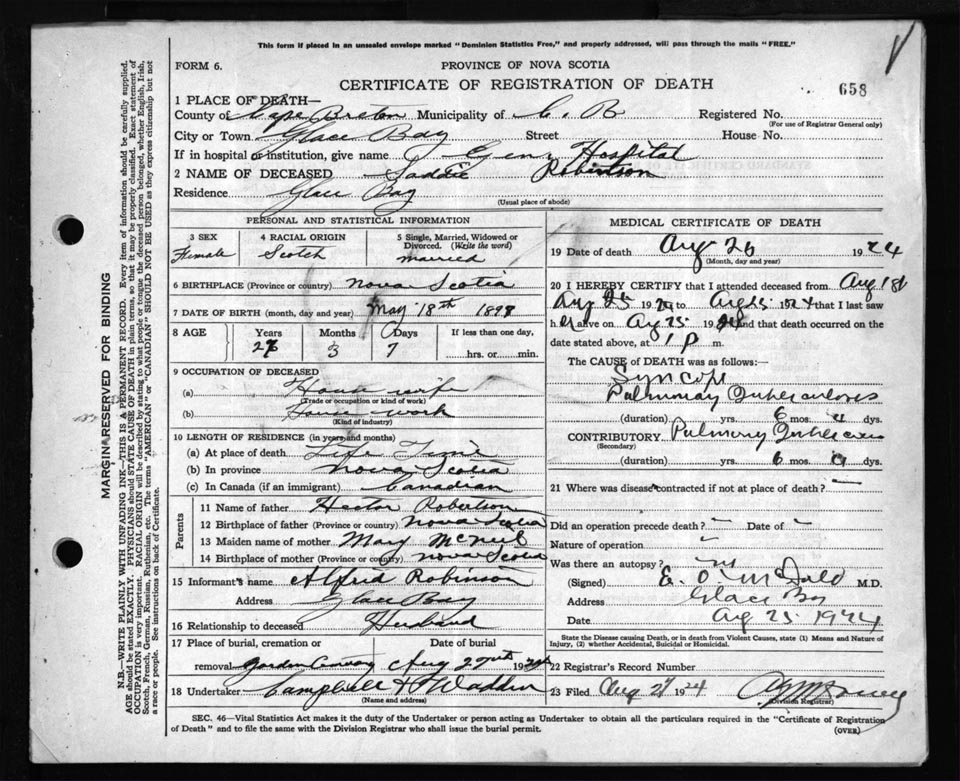 This form if placed in an unsealed envelope marked "Dominion Statistics Free," and properly addressed, will pass through the mails "FREE."
FORM 6.
PROVINCE OF NOVA SCOTIA
CERTIFICATE OF REGISTRATION OF DEATH
658
1 PLACE OF DEATH—
County of Cape Breton Municipality of C. B Registered No.
(For use of Registrar General only)
City or Town Glace Bay Street House No.
If in hospital or institution, give name Gen Hospital
2 NAME OF DECEASED Saddie Robertson
Residence Glace Bay
(Usual place of abode)
PERSONAL AND STATISTICAL INFORMATION
3 SEX 4 RACIAL ORIGIN 5 Single, Married, Widowed or
Divorced. (Write the word)
Female Scotch married
6 BIRTHPLACE (Province or country) Nova Scotia
7 DATE OF BIRTH (month, day and year) May 18th
8 AGE Years Months Days If less than one day,
3 7 hrs. or min.
9 OCCUPATION OF DECEASED
(a) House wife
(Trade or occupation or kind of work)
(b) House work
(Kind of industry)
10 LENGTH OF RESIDENCE (in years and months)
(a) At place of death Life Time
(b) In province Nova Scotia
(c) In Canada (if an immigrant) Canadian
Parents
11 Name of father Hector Robertson
12 Birthplace of father (Province or country) Nova Scotia
13 Maiden name of mother Mary McNeil
14 Birthplace of mother (Province or country) Nova Scotia
15 Informant's name Alfred Robinson
Address Glace Bay
16 Relationship to deceased Husband
17 Place of burial, cremation or Date of burial
removal Aug 19
18 Undertaker Campbell
(Name and address)
MEDICAL CERTIFICATE OF DEATH
19 Date of death Aug 26 1924
(Month, day and year)
20 I HEREBY CERTIFY that I attended deceased from Aug 18
Aug 25 19 to Aug 25 1924 that I last saw
her alive on Aug 25 1924 and that death occurred on the
date stated above, at 1 p m.
The CAUSE of DEATH was as follows:
Syncope
Pulmonary Tuberculosis
(duration) yrs. 6 mos. dys.
CONTRIBUTORY Pulmonary
(Secondary)
(duration) yrs. 6 mos. dys.
21 Where was disease contracted if not at place of death? —
Did an operation precede death? — Date of —
Nature of operation
Was there an autopsy? no
(Signed) M.D.
Address Glace Bay
Date Aug 25 1924
State the Disease causing Death, or in death from Violent Causes, state (1) Means and Nature of
Injury, (2) whether Accidental, Suicidal or Homicidal.
22 Registrar's Record Number
23 Filed Aug 27 1924
(Division Registrar)
SEC. 46—Vital Statistics Act makes it the duty of the Undertaker or person acting as Undertaker to obtain all the particulars required in the "Certificate of Registration
of Death" and to file the same with the Division Registrar who shall issue the burial permit. (OVER)
MARGIN RESERVED FOR BINDING
N.B.—WRITE PLAINLY WITH UNFADING INK—THIS IS A PERMANENT RECORD. Every item of information should be carefully supplied.
AGE should be stated EXACTLY. PHYSICIANS should STATE CAUSE OF DEATH in plain terms, so that it may be properly classified. Exact statement of
OCCUPATION is very important. RACIAL ORIGIN will be described by stating to what people or tongue the deceased person belonged, whether English, Irish,
Scotch, French, German, Russian, Ruthenian, etc. The terms "AMERICAN" or "CANADIAN" SHOULD NOT BE USED as they express citizenship but not
a race or people. See instructions on back of Certificate.